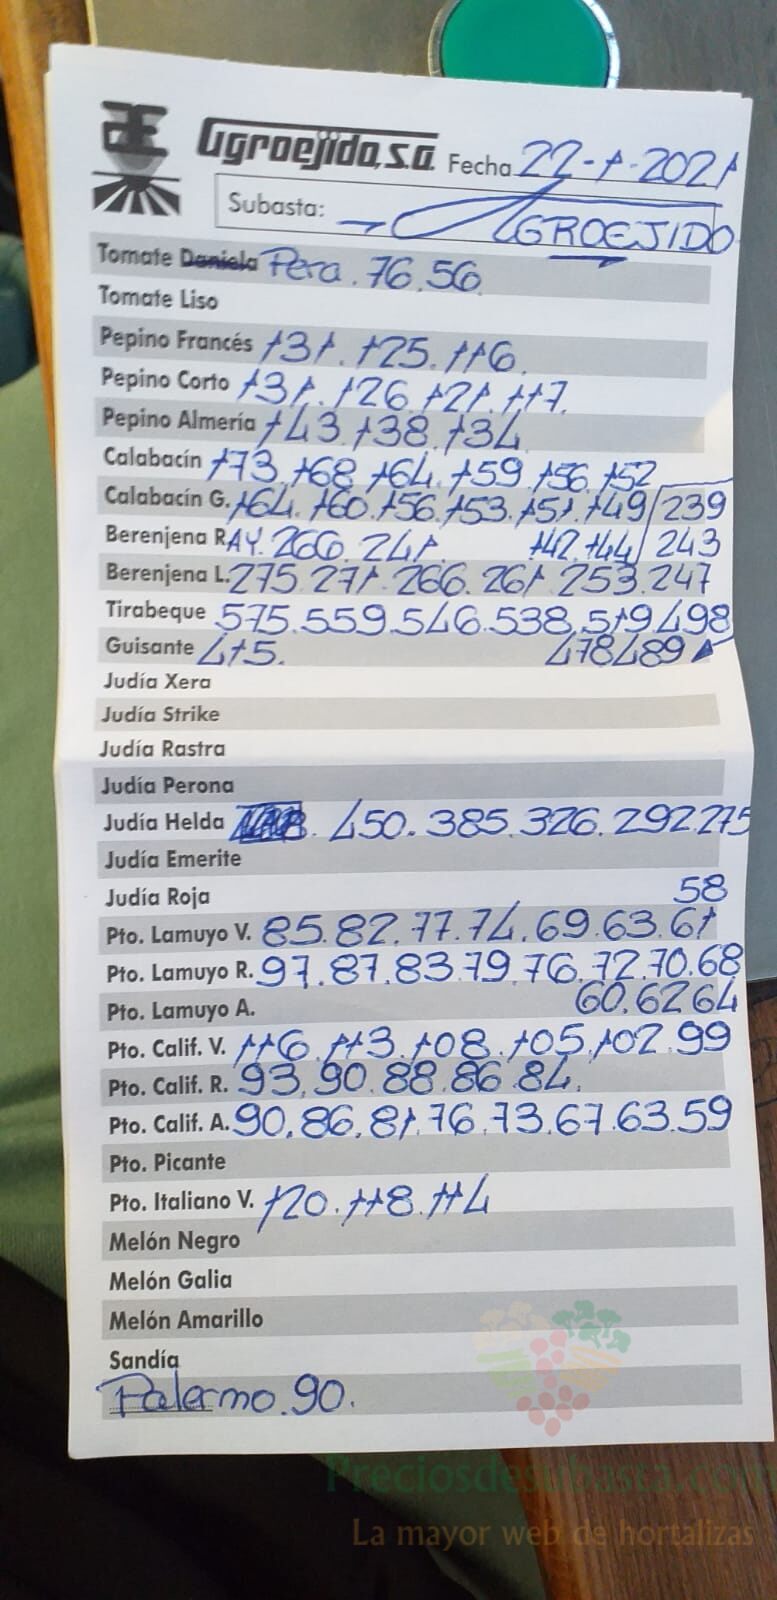 Agroejido, s.a. Fecha 22-1-2021
Subasta: AGROEJIDO
Tomate Daniela Pera. 76.56
Tomate Liso
Pepino Francés 131. 125. 116.
Pepino Corto 131. 126 121. 117.
Pepino Almería 143. 138. 134
Calabacín 173. 168 164. 159 156. 152
Calabacín G. 164. 160. 156. 153. 151. 149 239
Berenjena RAY. 266. 241. 142. 144 243
Berenjena L. 275. 271. 266. 261 253. 247
Tirabeque 575. 559. 546. 538. 519 498
Guisante 415. 478 489
Judía Xera
Judía Strike
Judía Rastra
Judía Perona
Judía Helda 450. 385. 326. 292. 275
Judía Emerite
Judía Roja 58
Pto. Lamuyo V. 85. 82. 77. 74. 69. 63. 61
Pto. Lamuyo R. 97. 87. 83. 79. 76. 72. 70. 68
Pto. Lamuyo A. 60. 62 64
Pto. Calif. V. 116. 113. 108. 105. 102. 99
Pto. Calif. R. 93. 90. 88. 86 84.
Pto. Calif. A. 90. 86. 81. 76. 73. 67. 63. 59
Pto. Picante
Pto. Italiano V. 120. 118. 114
Melón Negro
Melón Galia
Melón Amarillo
Sandía
Palermo. 90.
Preciosdesubasta.com
La mayor web de hortalizas